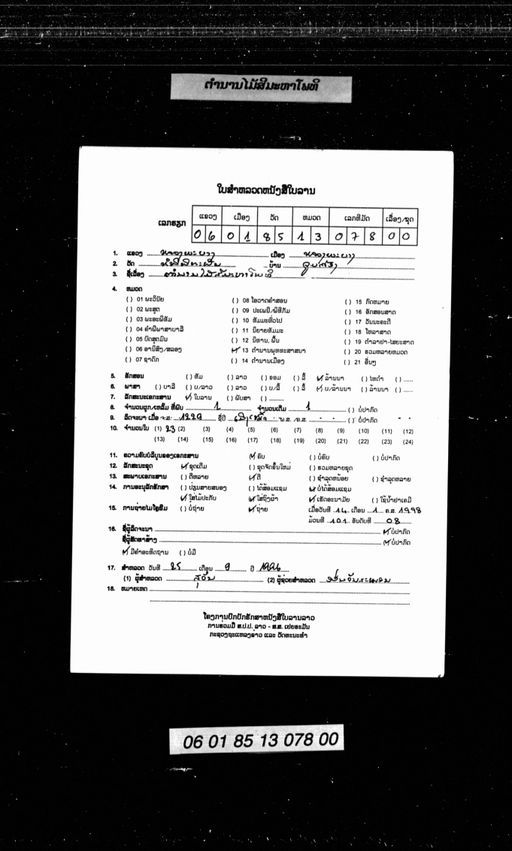 ຕຳນານໄມ້ສີມະຫາໂພທິ
ໃບສຳຫລວດຫນັງສືໃບລານ
ເລກຂຽກ
ແຂວງ ເມືອງ ວັດ ຫມວດ ເລກທີມັດ ເລື່ອງ/ຊຸດ
0 6 0 1 8 5 1 3 0 7 8 0 0
1. ແຂວງ ຫລວງພະບາງ ເມືອງ ຫລວງພະບາງ
2. ວັດ ບ້ານ
3. ຊື່ເລື່ອງ
4. ຫມວດ
( ) 01 ພະວິໄນ ( ) 08 ໂອວາດຄຳສອນ ( ) 15 ກົດຫມາຍ
( ) 02 ພະສູດ ( ) 09 ປະເພນີ/ພິທີກັມ ( ) 16 ອັກສອນສາດ
( ) 03 ພະອະພິທັມ ( ) 10 ທັມມະທົ່ວໄປ ( ) 17 ວັນນະຄະດີ
( ) 04 ຄຳພີພາສາບາລີ ( ) 11 ນິຍາຍທັມມະ ( ) 18 ໂຫລາສາດ
( ) 05 ບົດສູດມົນ ( ) 12 ນິທານ, ພື້ນ ( ) 19 ຕຳລາຢາ-ໄສຍະສາດ
( ) 06 ອານິສົງ/ສລອງ (✓) 13 ຕຳນານພຸທທະສາສນາ ( ) 20 ຮວມຫລາຍຫມວດ
( ) 07 ຊາດົກ ( ) 14 ຕຳນານເມືອງ ( ) 21 ອື່ນໆ
5. ອັກສອນ ( ) ທັມ ( ) ລາວ ( ) ຂອມ ( ) ລື້ (✓) ລ້ານນາ ( ) ໄທດຳ ( ) .....
6. ພາສາ ( ) ບາລີ ( ) ບ/ລາວ ( ) ລາວ ( ) ບ/ລື້ ( ) ລື້ (✓) ບ/ລ້ານນາ ( ) ລ້ານນາ ( ) .....
7. ລັກສະນະເອກະສານ (✓) ໃບລານ ( ) ພັບສາ ( ) ........
8. ຈຳນວນຜູກ/ເຫລັ້ມ ທີ່ພົບ 1 ຈຳນວນເຕັມ 1 ( ) ບໍ່ປາກົດ
9. ລິດຈະນາ ເມື່ອ ຈ.ສ. 1220 ຊຶ່ງ ພ.ສ. ຄ.ສ. ( ) ບໍ່ປາກົດ
10. ຈຳນວນໃບ (1) 23 (2) (3) (4) (5) (6) (7) (8) (9) (10) (11) (12)
(13) (14) (15) (16) (17) (18) (19) (20) (21) (22) (23) (24)
11. ຄວາມຄົບບໍລິບູນຂອງເອກະສານ (✓) ຄົບ ( ) ບໍ່ຄົບ ( ) ບໍ່ປາກົດ
12. ລັກສະນະຊຸດ (✓) ຊຸດເດີມ ( ) ຊຸດຈັດຂຶ້ນໃຫມ່ ( ) ຮວມຫລາຍຊຸດ
13. ສະພາບເອກະສານ ( ) ດີຫລາຍ (✓) ດີ ( ) ຊຳລຸດຫນ້ອຍ ( ) ຊຳລຸດຫລາຍ
14. ການອະນຸລັກຮັກສາ ( ) ປ່ຽນສາຍສນອງ ( ) ໄດ້ສ້ອມແຊມ (✓) ບໍ່ໄດ້ສ້ອມແຊມ
(✓) ໃສ່ໄມ້ປະກັບ (✓) ໃສ່ຖົງຜ້າ (✓) ເຮັດອະນາໄມ ( ) ໃຊ້ນ້ຳຢາເຄມີ
15. ການຖ່າຍໄມໂຄຣຟິມ ( ) ບໍ່ຖ່າຍ (✓) ຖ່າຍ ເມື່ອວັນທີ 14 ເດືອນ 1 ຄ.ສ. 1998
ມ້ວນທີ 101 ອັນດັບທີ 08
16. ຊື່ຜູ້ລິດຈະນາ (✓) ບໍ່ປາກົດ
ຊື່ຜູ້ສັດທາສ້າງ (✓) ບໍ່ປາກົດ
(✓) ມີຄຳອະທິດຖານ ( ) ບໍ່ມີ
17. ສຳຫລວດ ວັນທີ 25 ເດືອນ 9 ປີ 1994
(1) ຜູ້ສຳຫລວດ (2) ຜູ້ຊ່ວຍສຳຫລວດ
18. ຫມາຍເຫດ
ໂຄງການປົກປັກຮັກສາຫນັງສືໃບລານລາວ
ການຮວມມື ສ.ປ.ປ. ລາວ - ສ.ສ. ເຢຍຣະມັນ
ກະຊວງຖະແຫລງຂ່າວ ແລະ ວັດທະນະທຳ
06 01 85 13 078 00